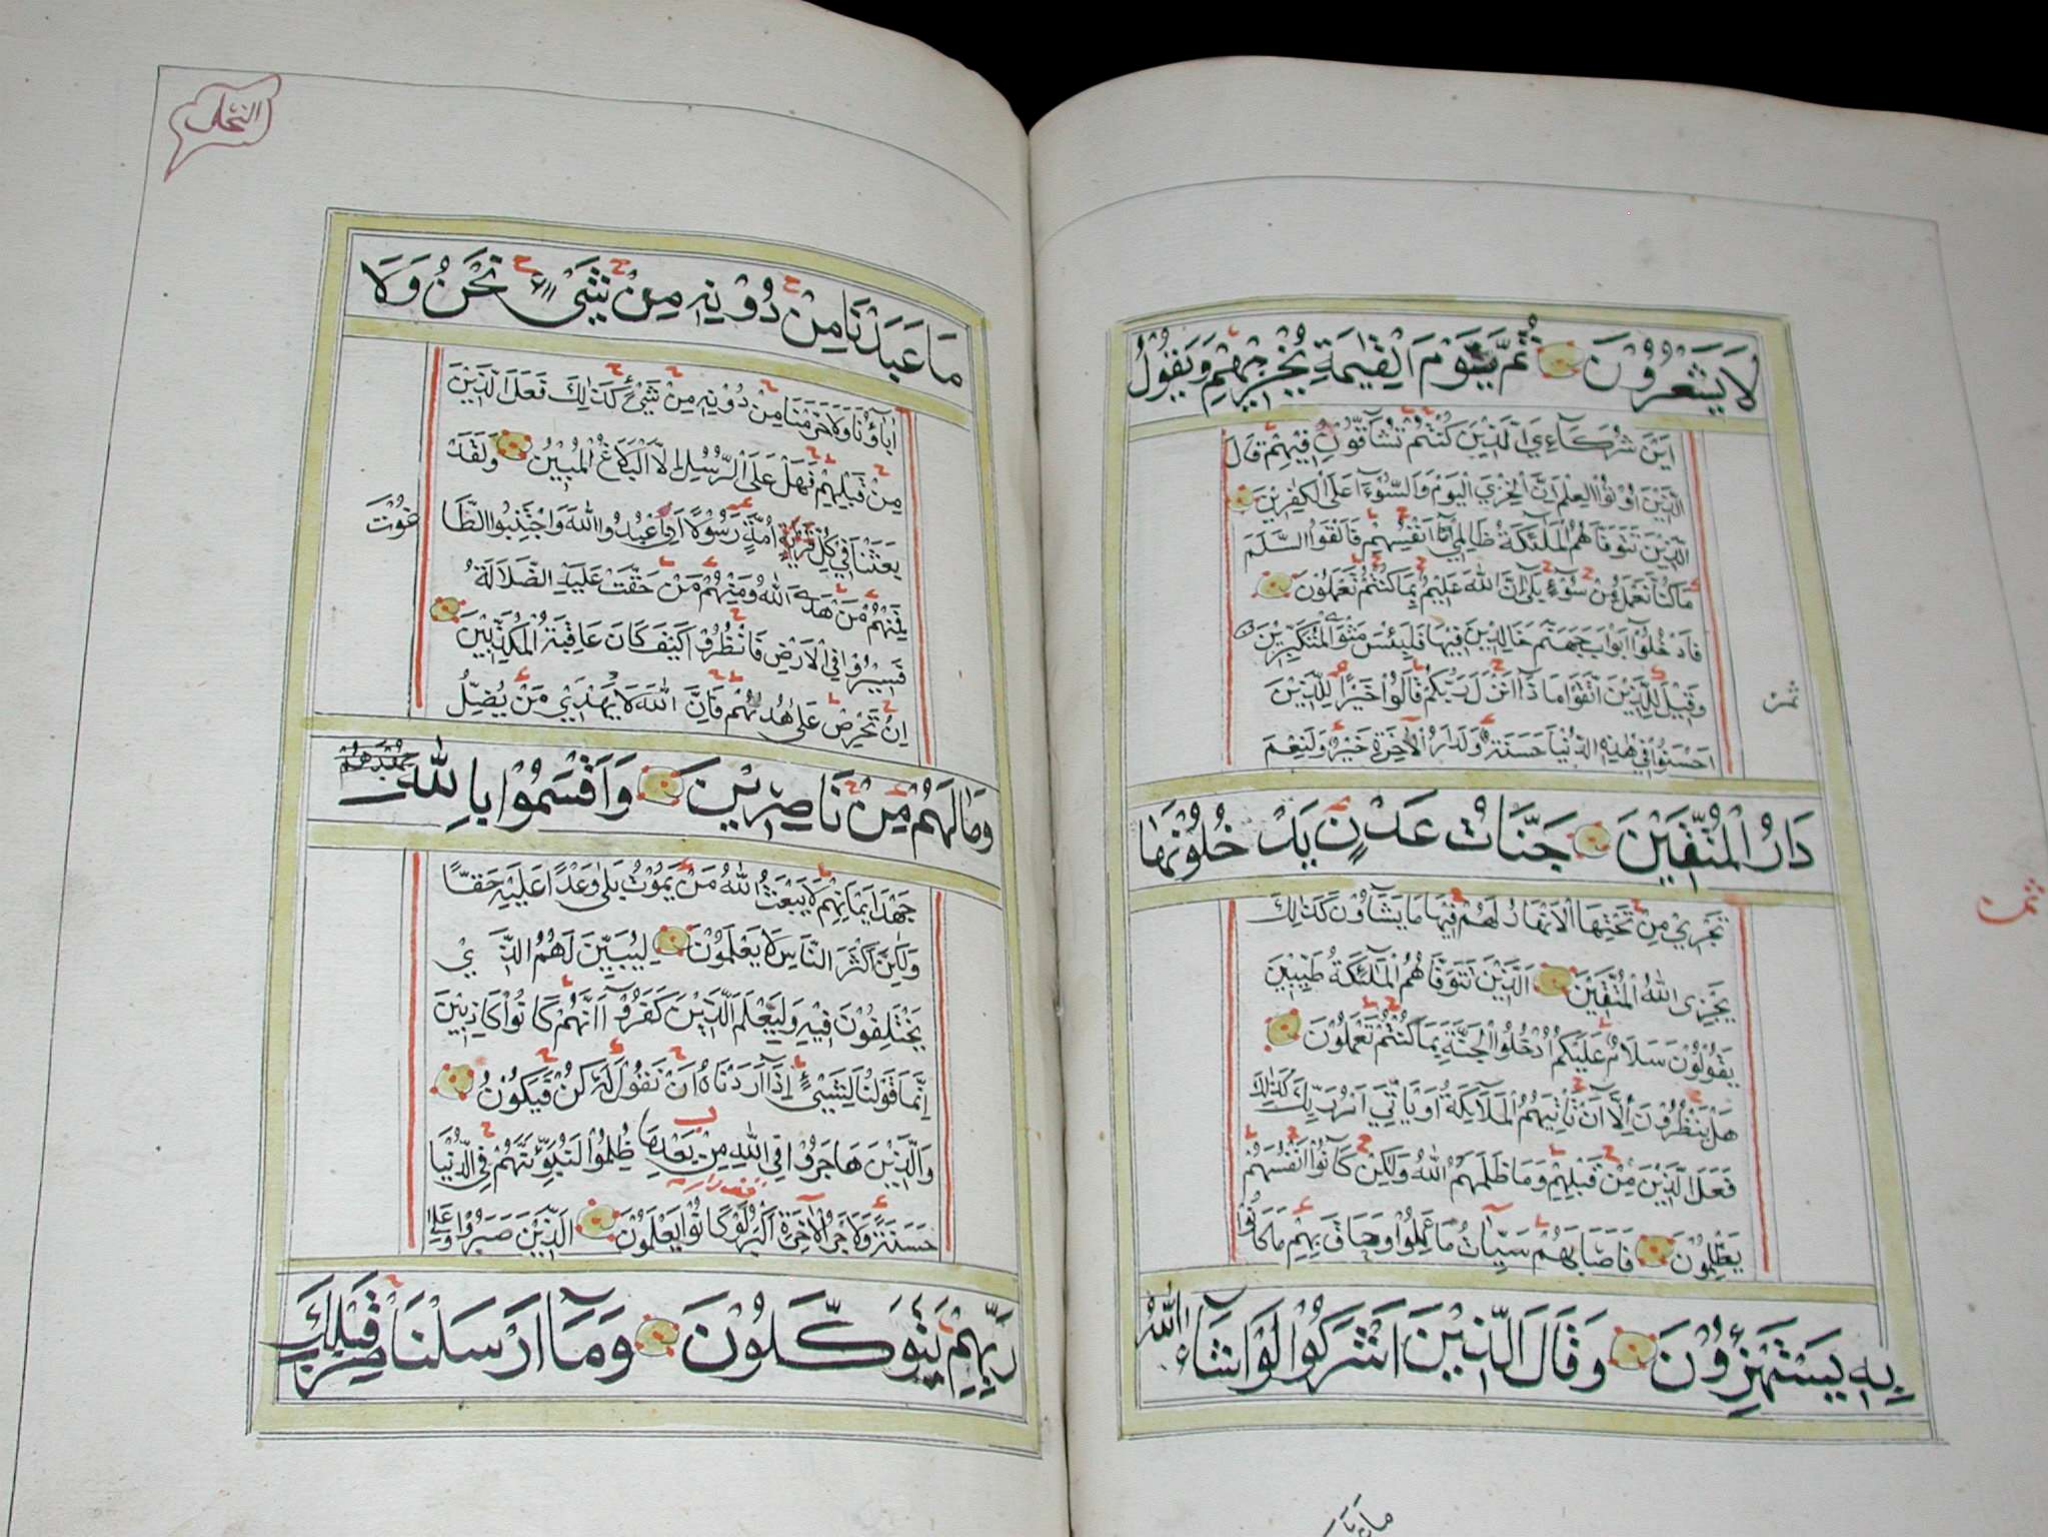 لَا يَشْعُرُوْنَ ثُمَّ يَوْمَ الْقِيٰمَةِ يُخْزِيْهِمْ وَيَقُوْلُ
اَيْنَ شُرَكَآءِيَ الَّذِيْنَ كُنْتُمْ تُشَآقُّوْنَ فِيْهِمْ قَالَ
الَّذِيْنَ اُوْتُوا الْعِلْمَ اِنَّ الْخِزْيَ الْيَوْمَ وَالسُّوْٓءَ عَلَى الْكٰفِرِيْنَ
الَّذِيْنَ تَتَوَفَّاهُمُ الْمَلٰٓئِكَةُ ظَالِمِيْٓ اَنْفُسِهِمْ فَاَلْقَوُا السَّلَمَ
مَا كُنَّا نَعْمَلُ مِنْ سُوْٓءٍ بَلٰى اِنَّ اللّٰهَ عَلِيْمٌ بِمَا كُنْتُمْ تَعْمَلُوْنَ
فَادْخُلُوْٓا اَبْوَابَ جَهَنَّمَ خَالِدِيْنَ فِيْهَا فَلَبِئْسَ مَثْوَى الْمُتَكَبِّرِيْنَ
وَقِيْلَ لِلَّذِيْنَ اتَّقَوْا مَاذَا اَنْزَلَ رَبُّكُمْ قَالُوْا خَيْرًا لِلَّذِيْنَ
ثمن
اَحْسَنُوْا فِيْ هٰذِهِ الدُّنْيَا حَسَنَةٌ وَلَدَارُ الْاٰخِرَةِ خَيْرٌ وَلَنِعْمَ
دَارُ الْمُتَّقِيْنَ جَنَّاتُ عَدْنٍ يَدْخُلُوْنَهَا
تَجْرِيْ مِنْ تَحْتِهَا الْاَنْهَارُ لَهُمْ فِيْهَا مَا يَشَآؤُنَ كَذٰلِكَ
ثمن
يَجْزِى اللّٰهُ الْمُتَّقِيْنَ الَّذِيْنَ تَتَوَفَّاهُمُ الْمَلٰٓئِكَةُ طَيِّبِيْنَ
يَقُوْلُوْنَ سَلَامٌ عَلَيْكُمُ ادْخُلُوا الْجَنَّةَ بِمَا كُنْتُمْ تَعْمَلُوْنَ
هَلْ يَنْظُرُوْنَ اِلَّآ اَنْ تَاْتِيَهُمُ الْمَلَآئِكَةُ اَوْ يَاْتِيَ اَمْرُ رَبِّكَ كَذٰلِكَ
فَعَلَ الَّذِيْنَ مِنْ قَبْلِهِمْ وَمَا ظَلَمَهُمُ اللّٰهُ وَلٰكِنْ كَانُوْٓا اَنْفُسَهُمْ
يَظْلِمُوْنَ فَاَصَابَهُمْ سَيِّاٰتُ مَا عَمِلُوْا وَحَاقَ بِهِمْ مَا كَانُوْا
بِهٖ يَسْتَهْزِءُوْنَ وَقَالَ الَّذِيْنَ اَشْرَكُوْا لَوْ شَآءَ اللّٰهُ
ما عبدنا
النحل
مَا عَبَدْنَا مِنْ دُوْنِهٖ مِنْ شَيْءٍ نَحْنُ وَلَآ
اٰبَآؤُنَا وَلَا حَرَّمْنَا مِنْ دُوْنِهٖ مِنْ شَيْءٍ كَذٰلِكَ فَعَلَ الَّذِيْنَ
مِنْ قَبْلِهِمْ فَهَلْ عَلَى الرُّسُلِ اِلَّا الْبَلَاغُ الْمُبِيْنُ وَلَقَدْ
بَعَثْنَا فِيْ كُلِّ اُمَّةٍ رَسُوْلًا اَنِ اعْبُدُوا اللّٰهَ وَاجْتَنِبُوا الطَّا غُوْتَ
فَمِنْهُمْ مَنْ هَدَى اللّٰهُ وَمِنْهُمْ مَنْ حَقَّتْ عَلَيْهِ الضَّلَالَةُ
فَسِيْرُوْا فِي الْاَرْضِ فَانْظُرُوْا كَيْفَ كَانَ عَاقِبَةُ الْمُكَذِّبِيْنَ
اِنْ تَحْرِصْ عَلٰى هُدٰىهُمْ فَاِنَّ اللّٰهَ لَا يَهْدِيْ مَنْ يُضِلُّ
وَمَا لَهُمْ مِنْ نَاصِرِيْنَ وَاَقْسَمُوْا بِاللّٰهِ
جَهْدَ اَيْمَانِهِمْ لَا يَبْعَثُ اللّٰهُ مَنْ يَمُوْتُ بَلٰى وَعْدًا عَلَيْهِ حَقًّا
وَلٰكِنَّ اَكْثَرَ النَّاسِ لَا يَعْلَمُوْنَ لِيُبَيِّنَ لَهُمُ الَّذِيْ
يَخْتَلِفُوْنَ فِيْهِ وَلِيَعْلَمَ الَّذِيْنَ كَفَرُوْٓا اَنَّهُمْ كَانُوْا كَاذِبِيْنَ
اِنَّمَا قَوْلُنَا لِشَيْءٍ اِذَآ اَرَدْنَاهُ اَنْ نَقُوْلَ لَهٗ كُنْ فَيَكُوْنُ
وَالَّذِيْنَ هَاجَرُوْا فِي اللّٰهِ مِنْ بَعْدِ مَا ظُلِمُوْا لَنُبَوِّئَنَّهُمْ فِي الدُّنْيَا
حَسَنَةً وَلَاَجْرُ الْاٰخِرَةِ اَكْبَرُ لَوْ كَانُوْا يَعْلَمُوْنَ الَّذِيْنَ صَبَرُوْا وَعَلٰى
رَبِّهِمْ يَتَوَكَّلُوْنَ وَمَآ اَرْسَلْنَا مِنْ قَبْلِكَ